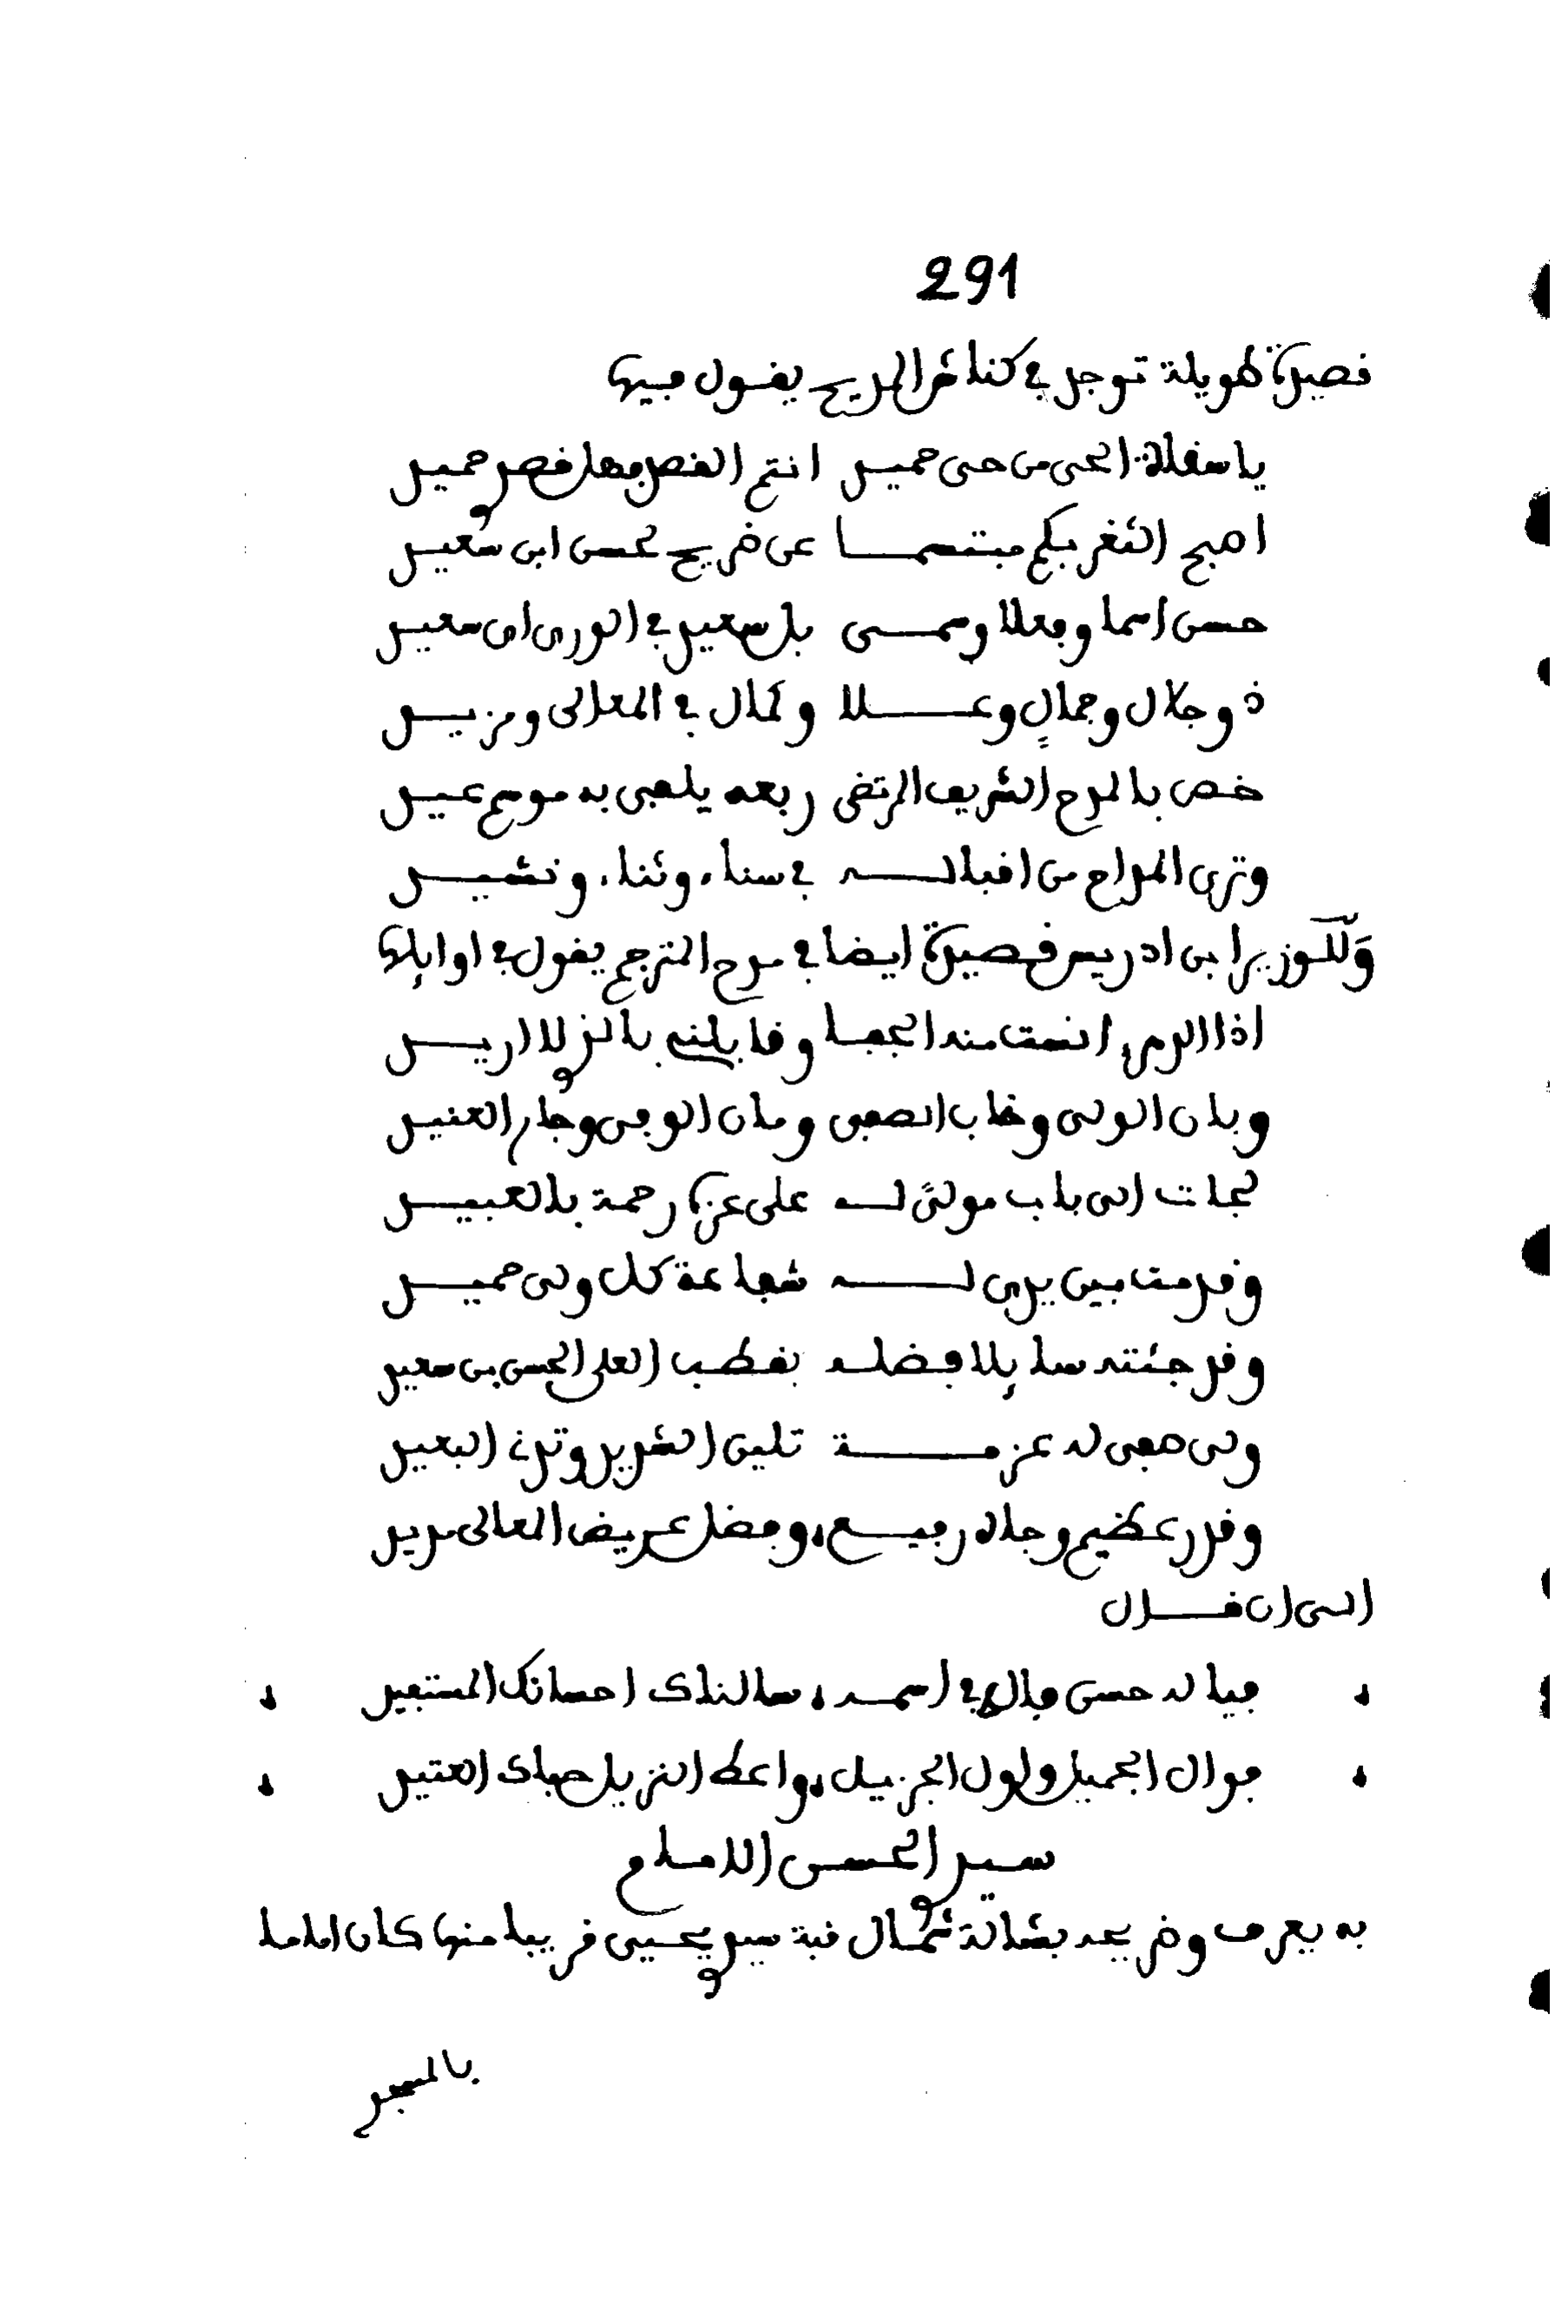 291
قصيدة طويلة توجد في كنانش المديح يقول فيها
يا سقاة الحي من حي حميد انتم القصد وهل قصد حميد
اصبح الثغر بكم مبتسما عن ضريح لحسن ابن سعيد
حسن اسما وفعلا وسمى بل سعيد في الورى اي سعيد
ذو جلال وجمال وعلا وكمال في المعالى ومزيد
خص بالمدح الشريف المرتضى ربعه يلفى به موسم عيد
وترى المداح من اقباله في سناء وثناء ونشيد
وللوزير ابن ادريس قصيدة ايضا في مدح المترجم يقول في اوايلها
اذا الدهر انحت منه الجفا وقابلني بالزلال يد
وبان الولى وخاب الصفى ومان الوفى وجار العنيد
لجات الى باب مولى له على عزة رحمة بالعبيد
وقدمت بين يدي له شفاعة كل ولى حميد
وقد جئته سايلا فضله بقطب العلى الحسن بن سعيد
ولى صفى له عزمة تلين الشديد وتدني البعيد
وقدر عظيم وجاه رفيع، وفضل عريض المعالى مديد
الى ان قال
فيا له حسن فال في اسمه، سالناك احسانك المستفيد
فوال الجميل واول الجزيل، واعط النزيل حباك العتيد
سيدي الحسن الامام
به يعرف وضريحه بشالة شمال قبة سيدي يحيى قريبا منها كان اماما
بالمسجد